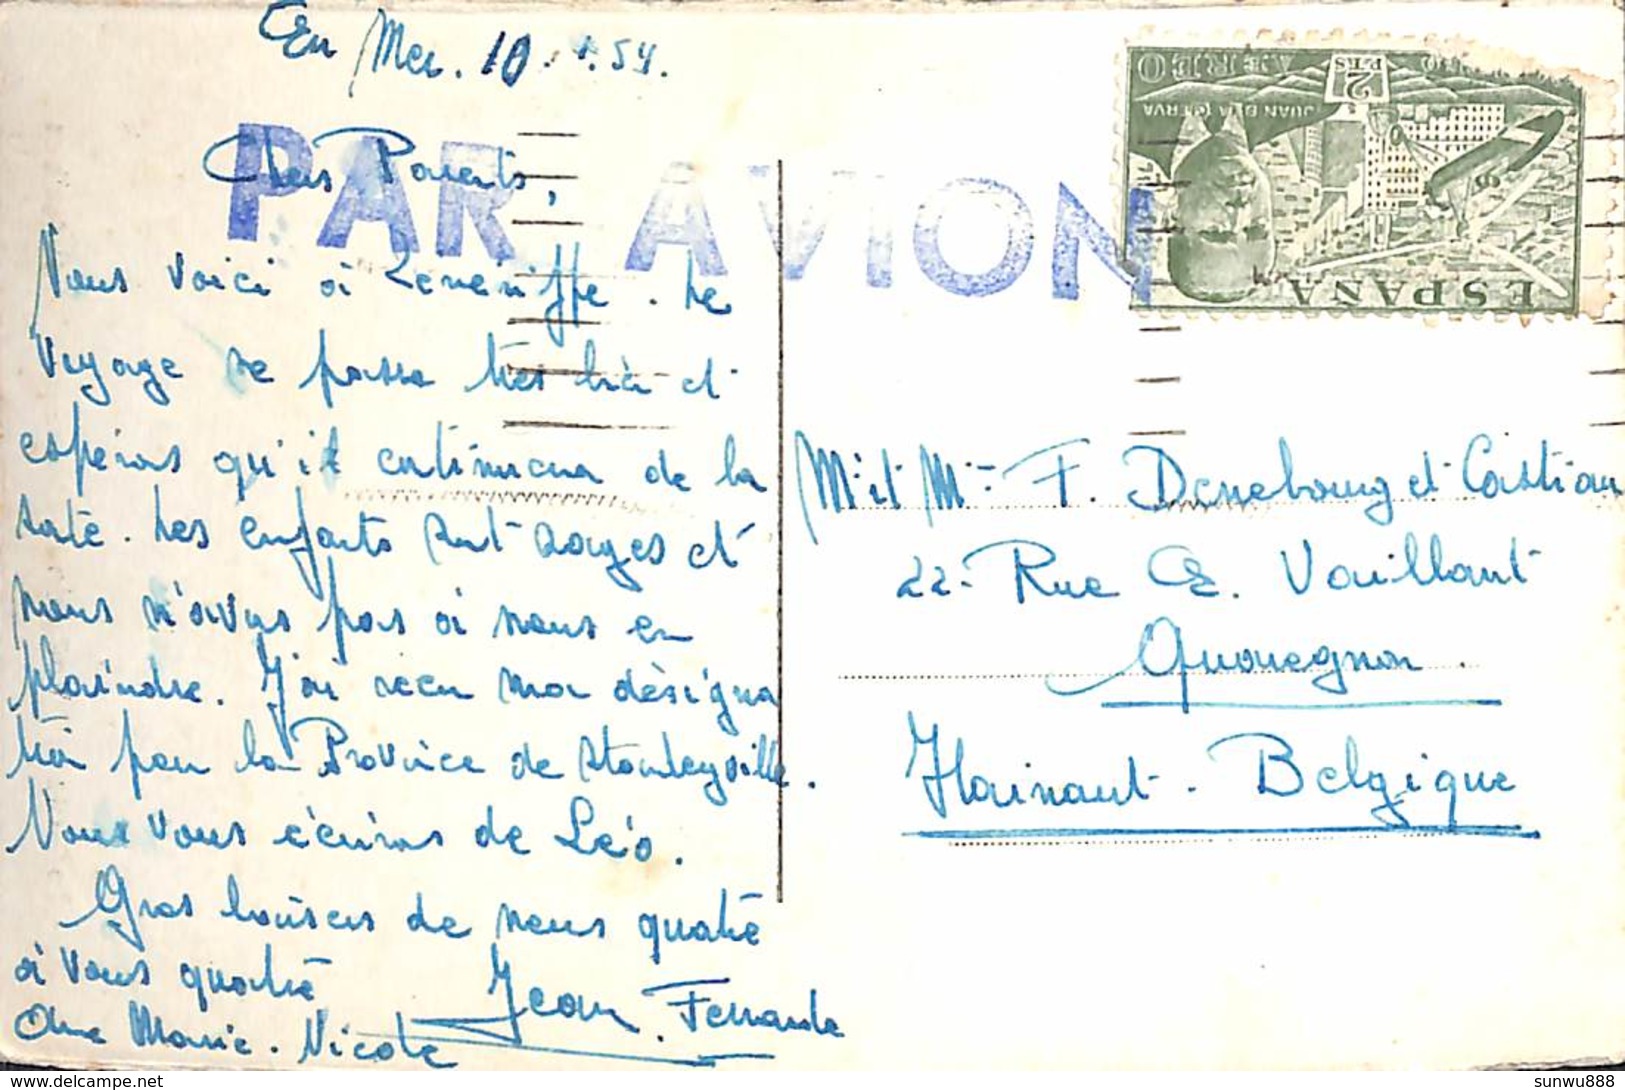 En Mer. 10.1.54.
PAR AVION
Chers Parents,
Nous voici à Ténériffe. Le
Voyage se passe très bien et
espérons qu'il continuera de la
sorte. Les enfants sont sages et
nous n'avons pas à nous en
plaindre. J'ai reçu ma désigna
tion pour la Province de Stanleyville.
Nous vous écrirons de Léo.
Gros baisers de nous quatre
à vous quatre
Jean. Fernande
Anne Marie. Nicole
2 PTS
AEREO
JUAN DE LA CIERVA
ESPAÑA
Mr et Mme F. Denebourg et Castiau
22 - Rue E. Vaillant
Quaregnon.
Hainaut - Belgique
www.delcampe.net
sunwu888